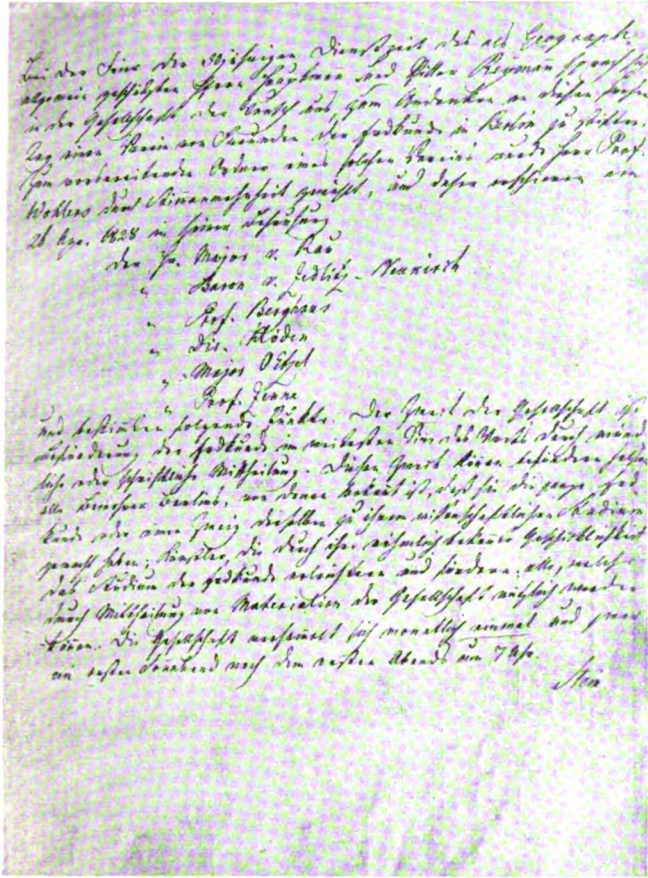 Bei der Feier der 50jährigen Dienstzeit des als Geographe
allgemein geschätzten Herrn Hauptmann und Ritter Reyman sprach sich
in der Gesellschaft der Wunsch aus, zum Andenken an diesen frohen
Tag einen Verein von Freunden der Erdkunde in Berlin zu stiften.
Zum vorbereitenden Ordner eines solchen Vereins wurde Herr Prof.
Wohlers durch Stimmenmehrheit gewählt, und daher erschienen am
26 Apr. 1828 in seiner Behausung
der Hr. Major v. Rau
" Baron v. Zedlitz-Neukirch
" Prof. Berghaus
" Dir. Klöden
" Major Oetzel
" Prof. Zeune
und bestimmten folgende Punkte. Der Zweck der Gesellschaft ist
Beförderung der Erdkunde im weitesten Sinn des Worts durch münd-
liche oder schriftliche Mittheilung. Diesen Zweck können befördern helfen
alle Bewohner Berlins, von denen bekannt ist, daß sie die ganze Erd-
kunde oder einen Zweig derselben zu ihrem wissenschaftlichen Studium
gemacht haben; Künstler, die durch ihre rühmlich bekannte Geschicklichkeit
das Studium der Erdkunde erleichtern und fördern; alle, welche
durch Mittheilung von Materialien der Gesellschaft nützlich werden
können. Die Gesellschaft versammelt sich monatlich einmal und zwar
am ersten Sonnabend nach dem ersten Abends um 7 Uhr.